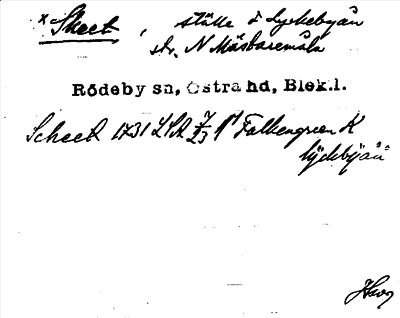 x Skeet, ställe i Lyckebyån
str. N Måsbaremåla
Rödeby sn, Östra hd, Blek.l.
Scheet 1731 LSA 7/23 Falkengreen K
Lyckbyån